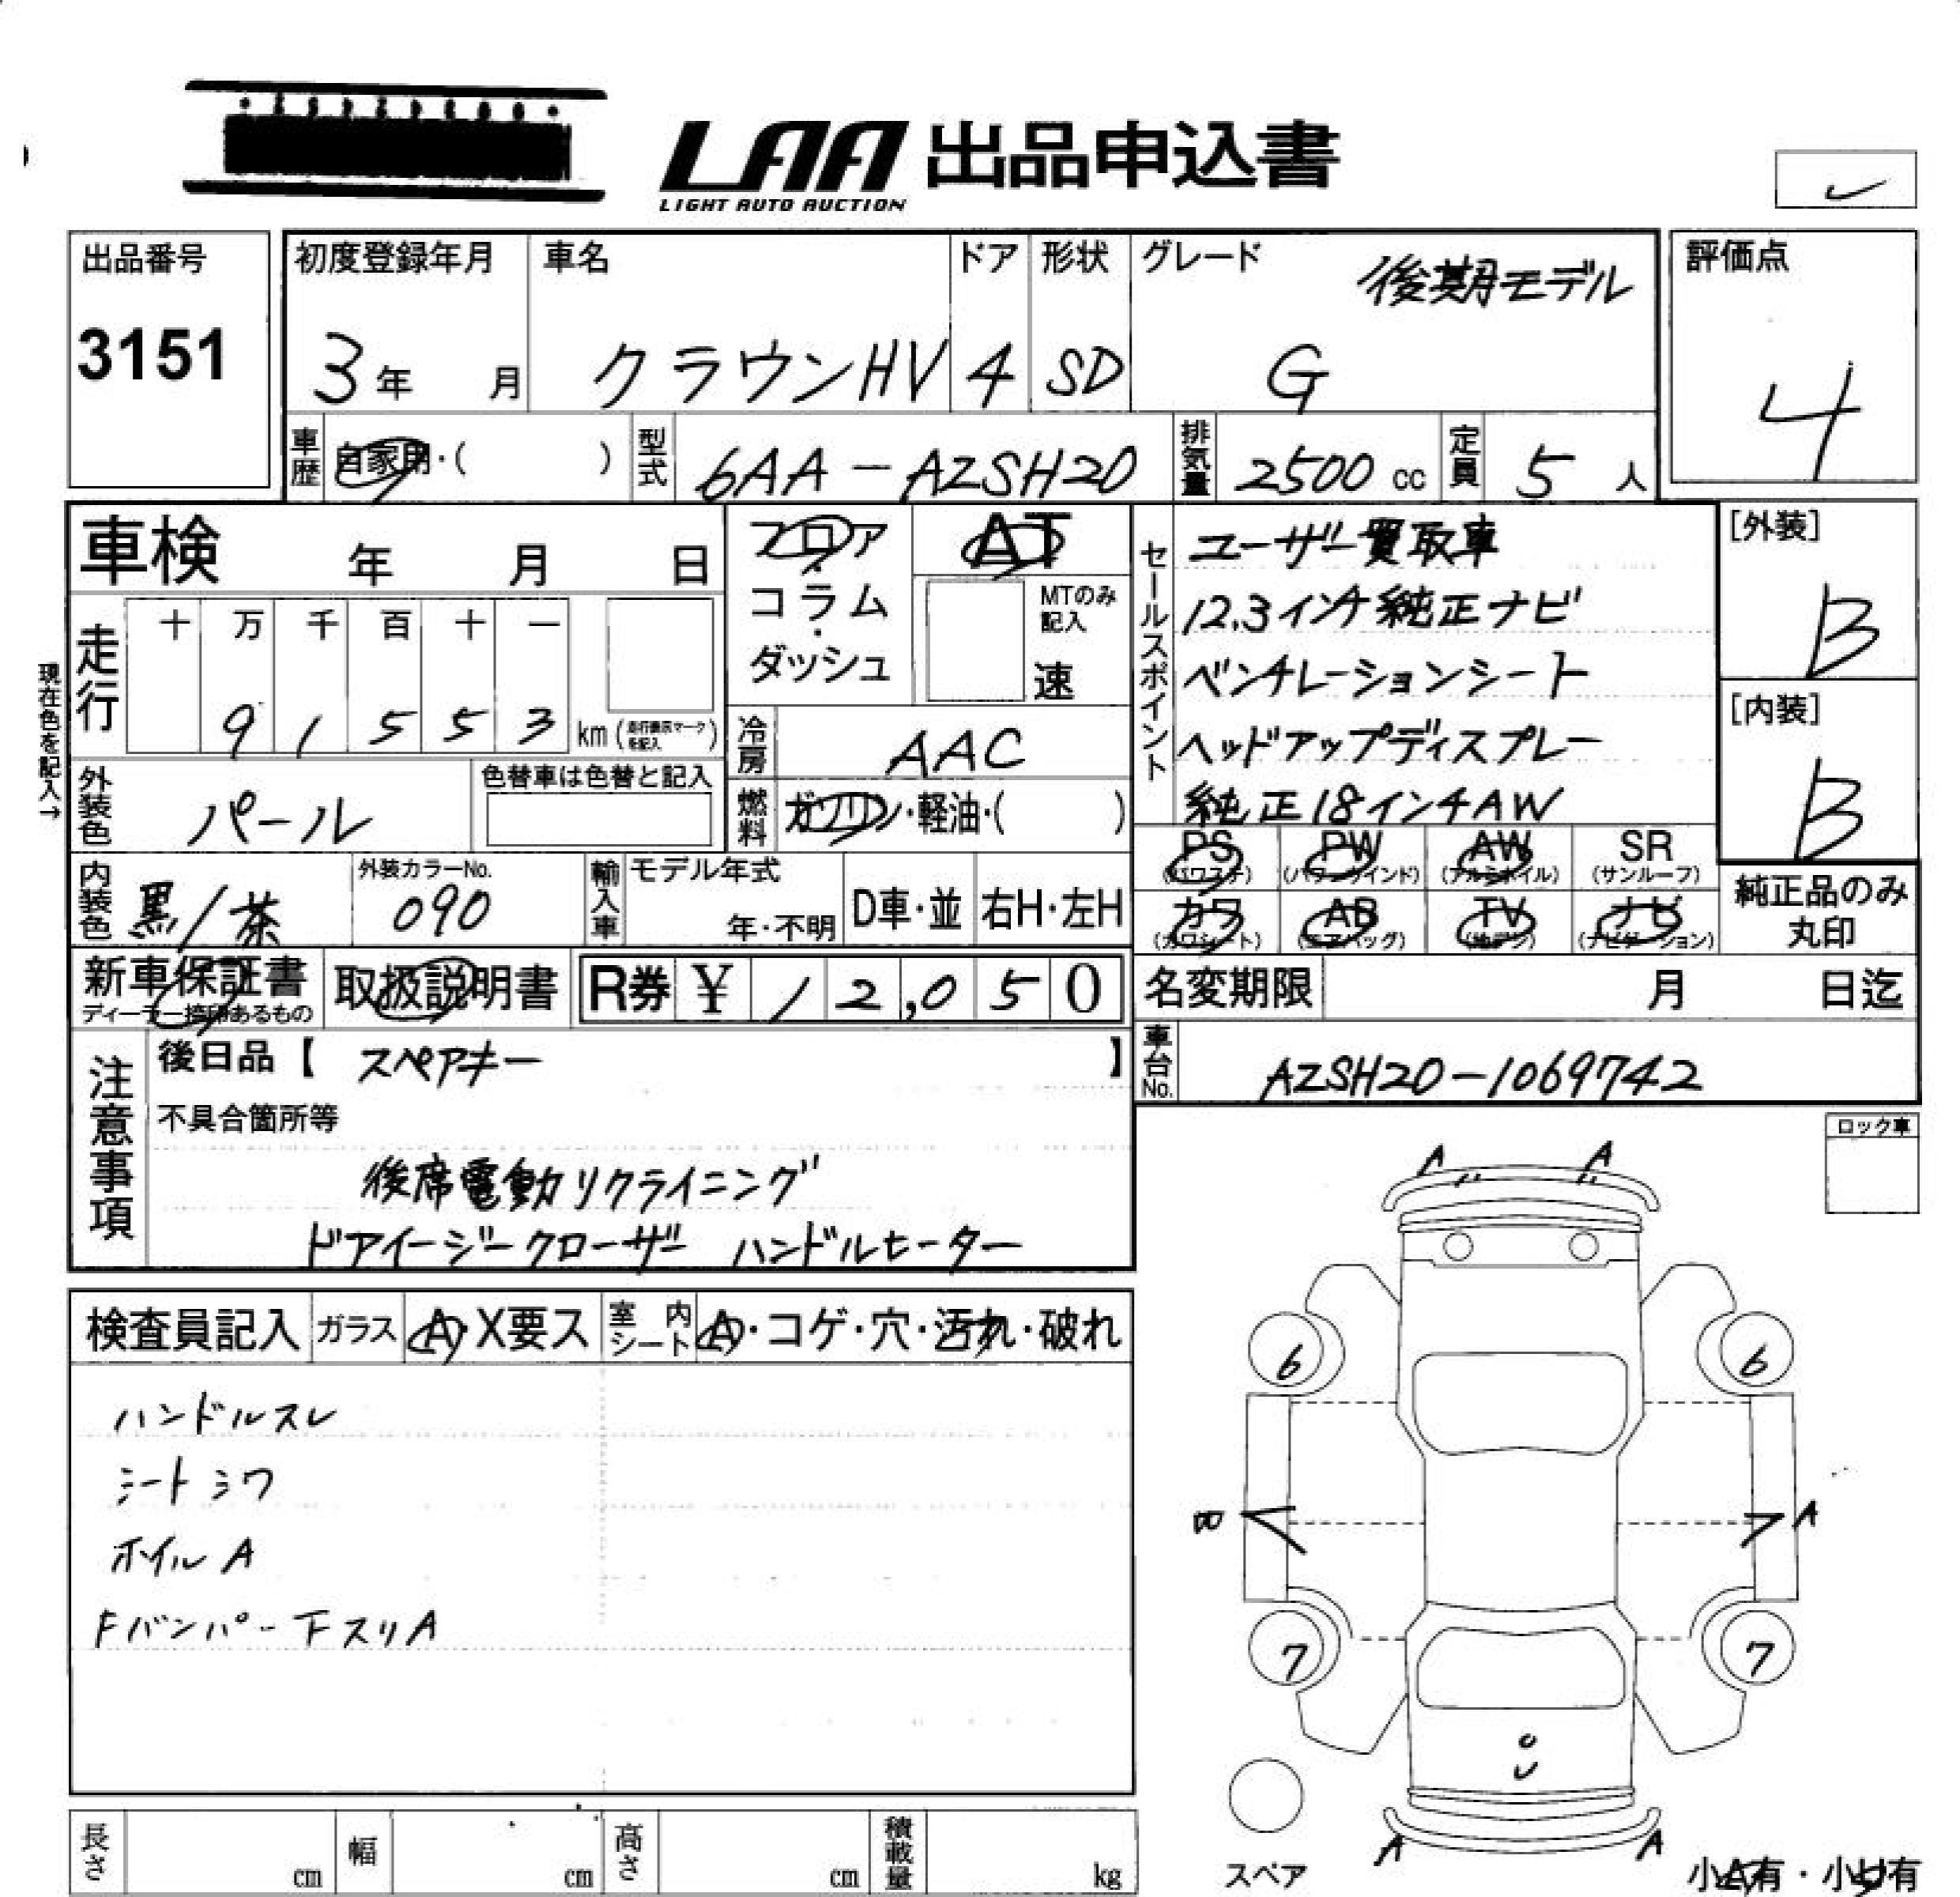 LAA 出品申込書
LIGHT AUTO AUCTION
出品番号 初度登録年月 車名 ドア 形状 グレード 後期モデル 評価点
3151 3年 月 クラウンHV 4 SD G 4
車歴 自家用・( ) 型式 6AA-AZSH20 排気量 2500 cc 定員 5 人
車検 年 月 日 フロア AT セールスポイント ユーザー買取車 [外装]
コラム MTのみ記入 12.3インチ純正ナビ B
走行 十 万 千 百 十 一
ダッシュ 速 ベンチレーションシート [内装]
9 1 5 5 3 km (走行表示マークを記入) 冷房 AAC ヘッドアップディスプレー B
現在色を記入→
外装色 パール 色替車は色替と記入 燃料 ガソリン・軽油・( ) 純正18インチAW
PS (パワステ) PW (パワーウインド) AW (アルミホイル) SR (サンルーフ)
内装色 黒/茶 外装カラーNo. 090 輸入車 モデル年式 年・不明 D車・並 右H・左H
カワ (カワシート) AB (エアバッグ) TV (地デジ) ナビ (ナビゲーション) 純正品のみ丸印
新車保証書 取扱説明書 R券 ¥ 12,050 名変期限 月 日迄
ディーラー捺印あるもの
注意事項 後日品【 スペアキー 】 車台No. AZSH20-1069742
不具合箇所等 ロック車
後席電動リクライニング
ドアイージークローザー ハンドルヒーター
A A
検査員記入 ガラス A・X要ス 室内シート A・コゲ・穴・汚れ・破れ
6 6
ハンドルスレ
シートシワ
B A
ホイルA
Fバンパー下スリA
7 7
A A
長さ cm 幅 cm 高さ cm 積載量 kg スペア 小A有・小U有